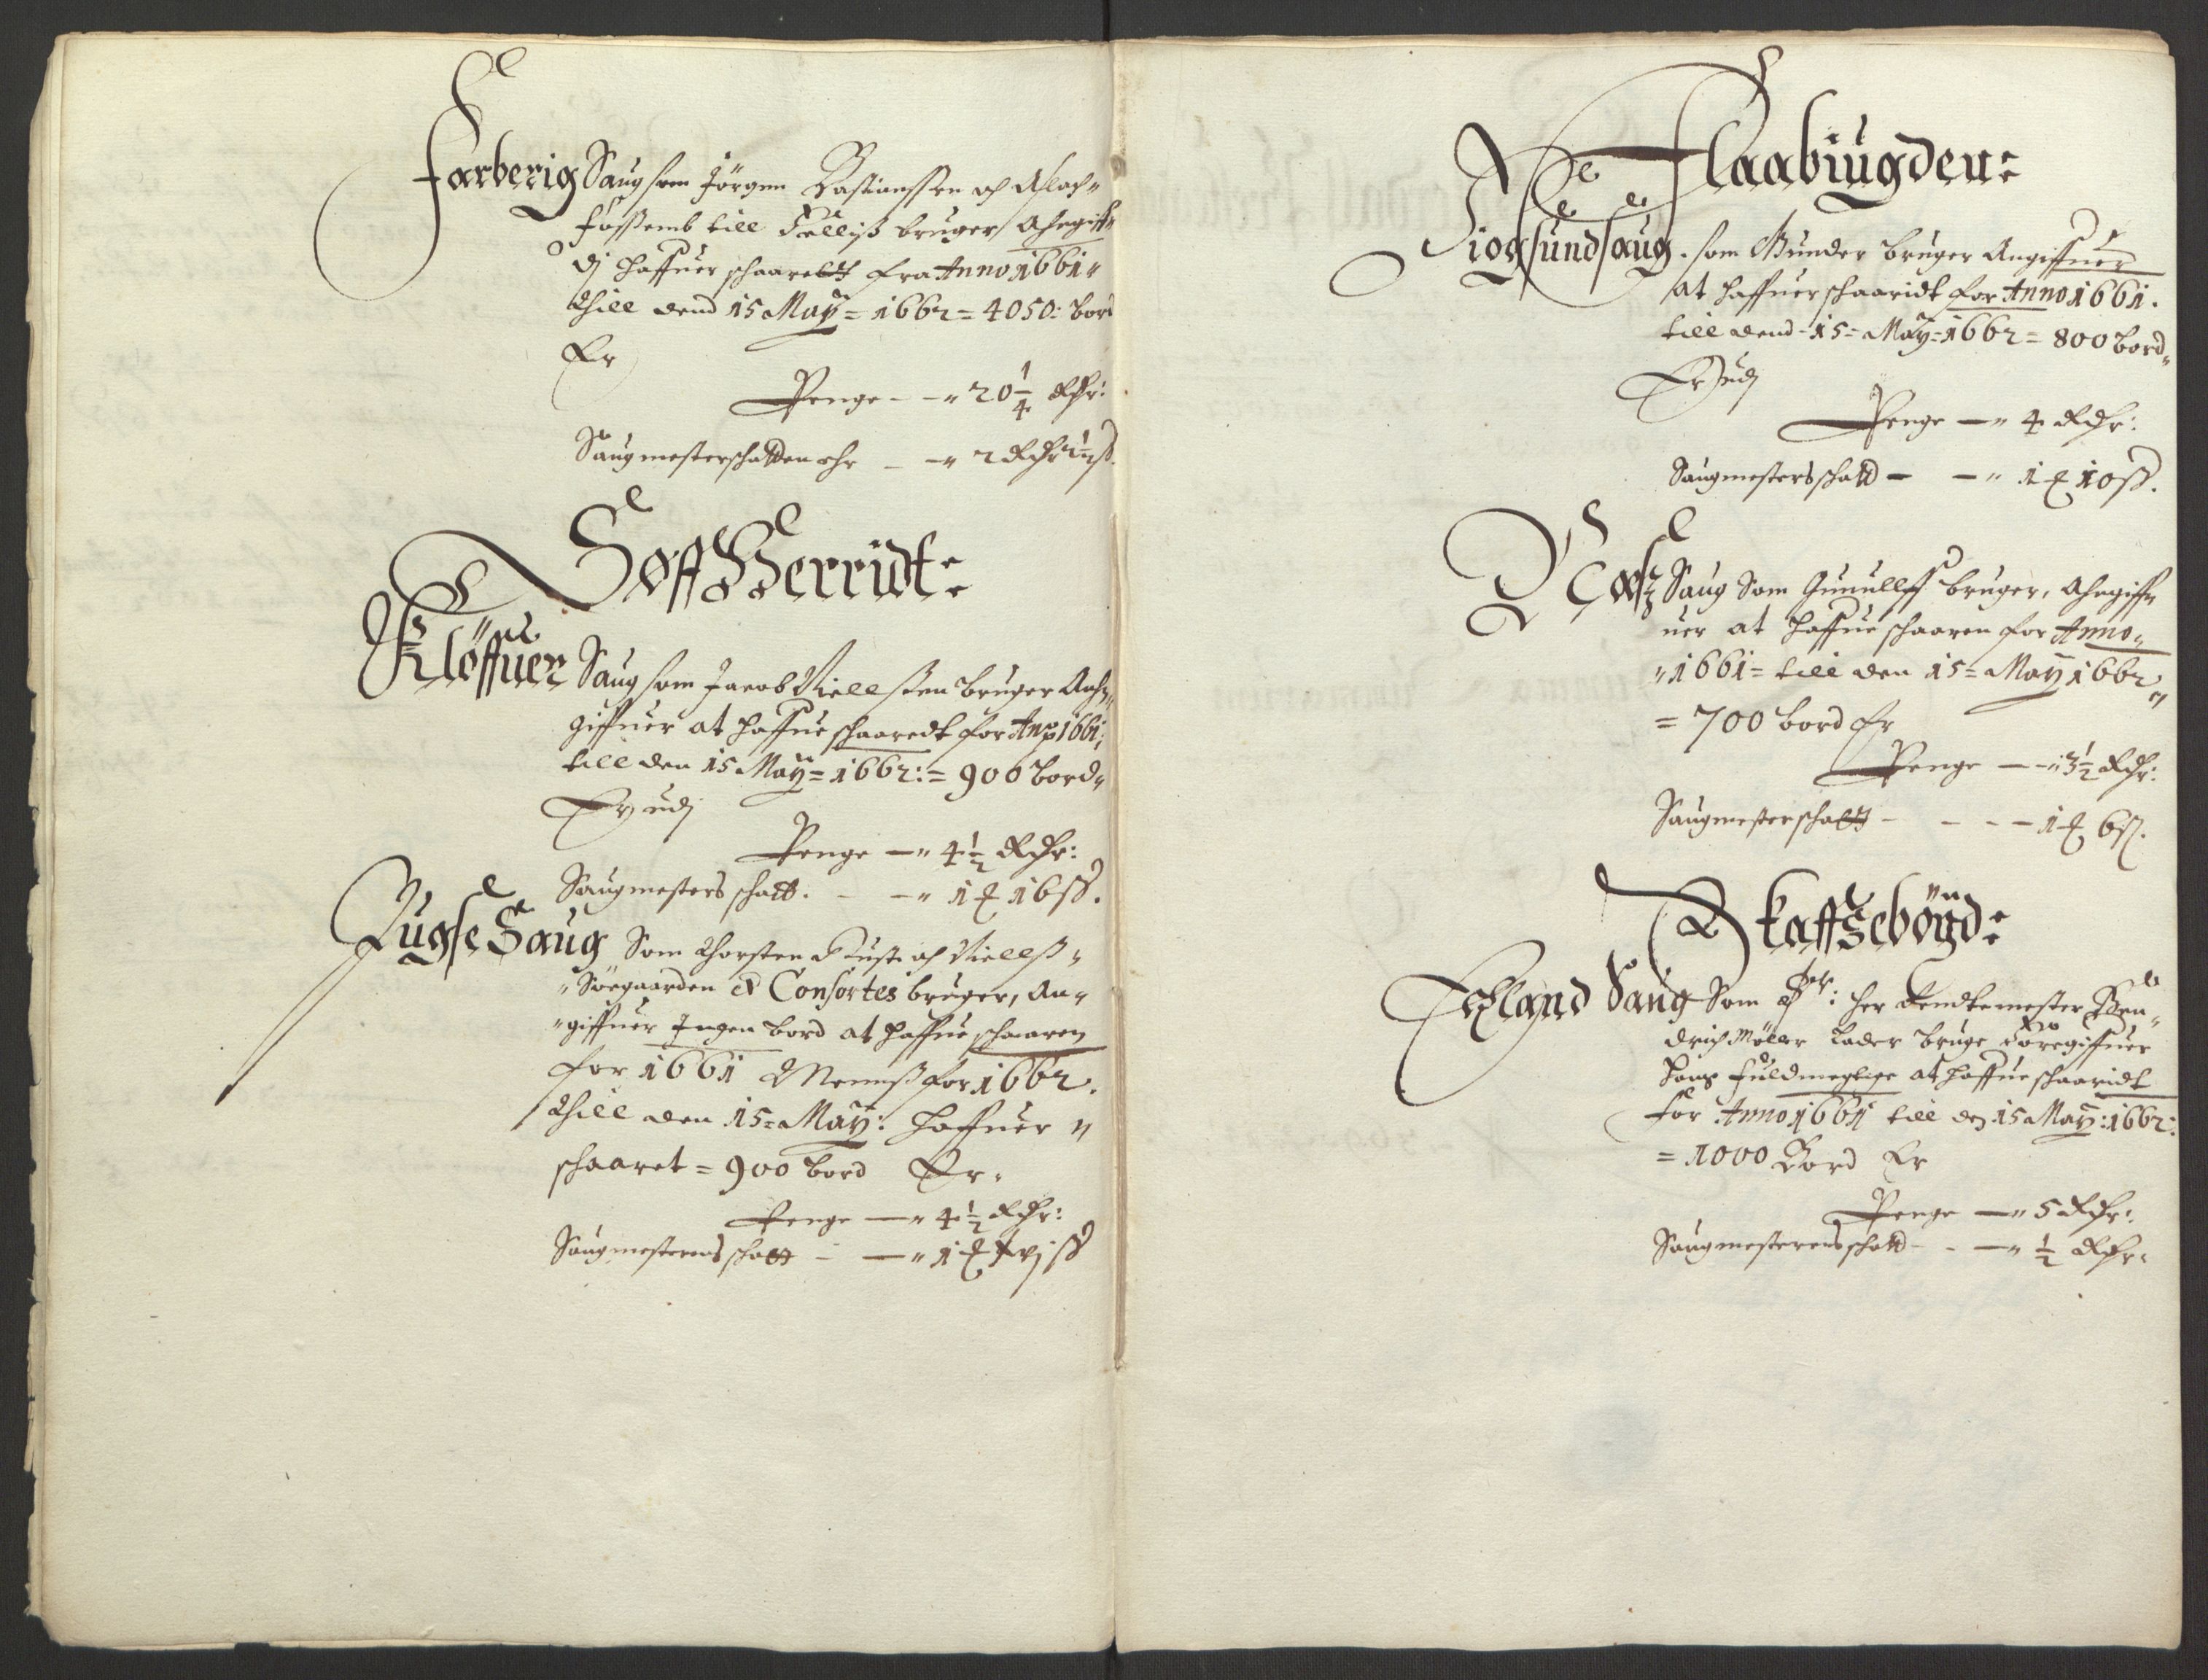 Farberig Saug som Jörgen Bastianssen och Aslach
Fossemb till Felliß bruger Ahngiff
dj haffuer schaareltt fra Anno 1661
thill dend 15 May = 1662 = 4050: bord
Er
Penge - - 20 1/4 Rdr:
Saugmesterschatten ehr - - 2 Rdr
Søff Herridt:
Kløffuer Saug som Jacob Niellssen bruger Anh
giffuer at haffue schaaredt for Ano 1661
till den 15 May = 1662: = 900 bord
Er udj
Penge - 4 1/2 Rdr:
Saugmesters schatt. - - 1 ƶ 16 ß.
Rugse Saug Som Thorsten och Niellß
Söegaarden et Consortes bruger, An
giffuer Ingen bord at haffue schaaren
for 1661 Menß for 1662.
thill den 15 = May: haffuer
schaaret = 900 bord Er
Penge - 4 1/2 Rdr:
Saugmesterens schatt - - 1 ƶ xvj ß
Flaabiugden:
Siogsund saug. som Gunder bruger Angiffuer
at haffuer schaaridt for Anno 1661.
till dend 15 = May = 1662 = 800 bord
Er udj
Penge - 4 Rdr:
Saugmesters schatt - - 1 ƶ 10 ß.
Saug Som Gunulff bruger, Ahngiff
uer at haffue schaaren for Anno
1661 = till den 15 = May 1662
= 700 bord Er
Penge - - 3 1/2 Rdr:
Saugmesterschatt - - - - 1 ƶ 6 ß.
Skaffsebögd:
Saug Som Hr: her Rendtemester Hen
drich Möller Lader bruge Foregiffuer
hans fuldmegtige at haffue schaaridt
for Anno 1661 till den 15 May: 1662:
= 1000 Bord Er
Penge - 5 Rdr:
Saugmesterens schatt - - - 1/2 Rdr